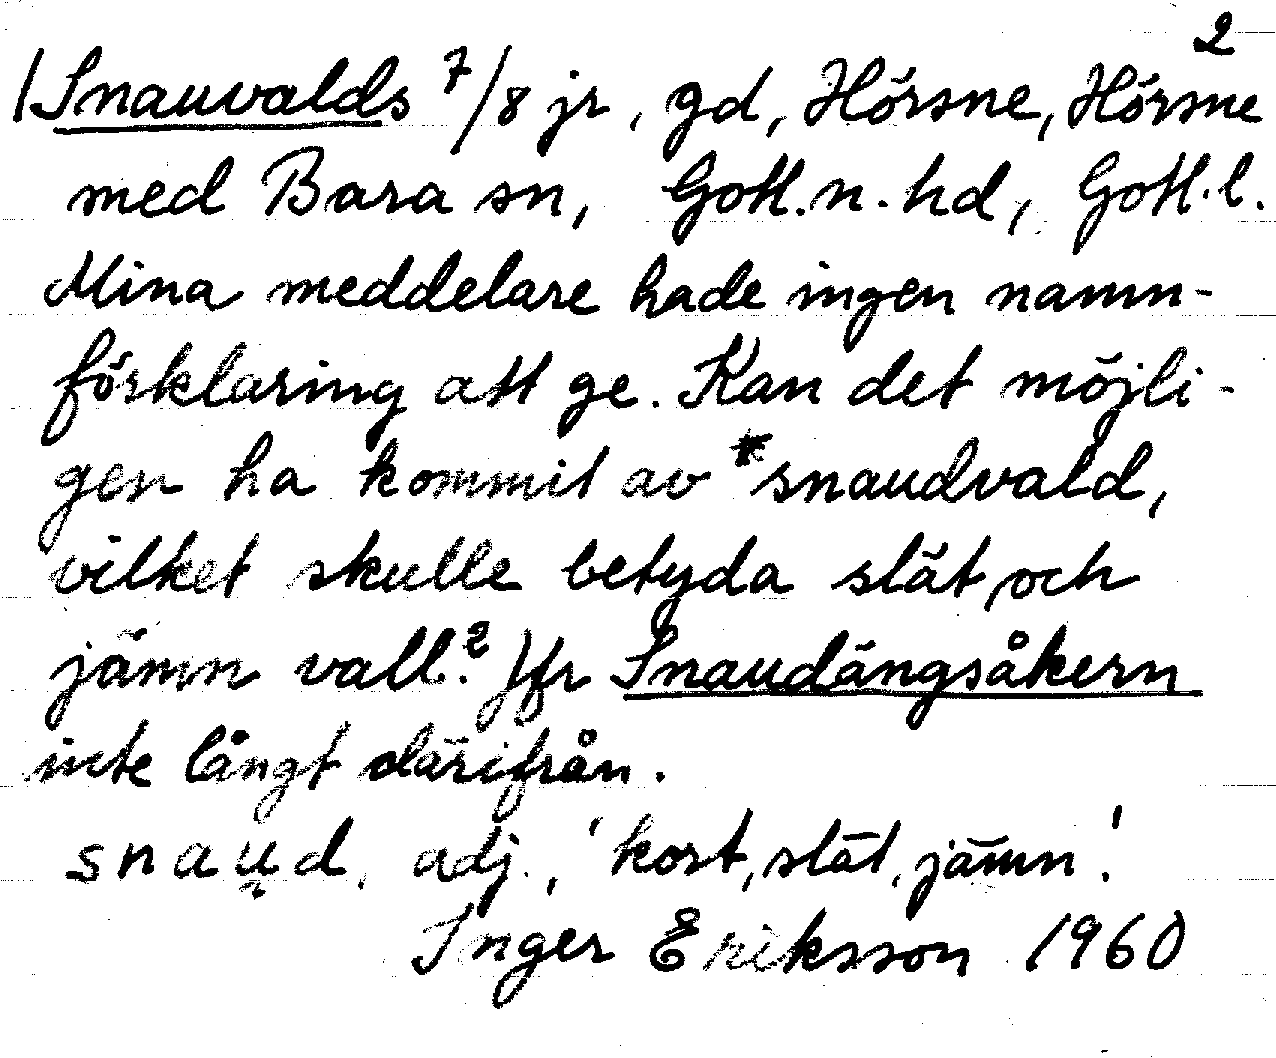 2
Snauvalds 7/8 jr, gd, Hörsne, Hörsne
med Bara sn, Gotl. n. hd, Gotl. l.
Mina meddelare hade ingen namn-
förklaring att ge. Kan det möjli-
gen ha kommit av *snaudvald,
vilket skulle betyda slät och
jämn vall? Jfr Snaudängsåkern
inte långt därifrån.
snau̯d, adj., 'kort, slät, jämn'.
Inger Eriksson 1960